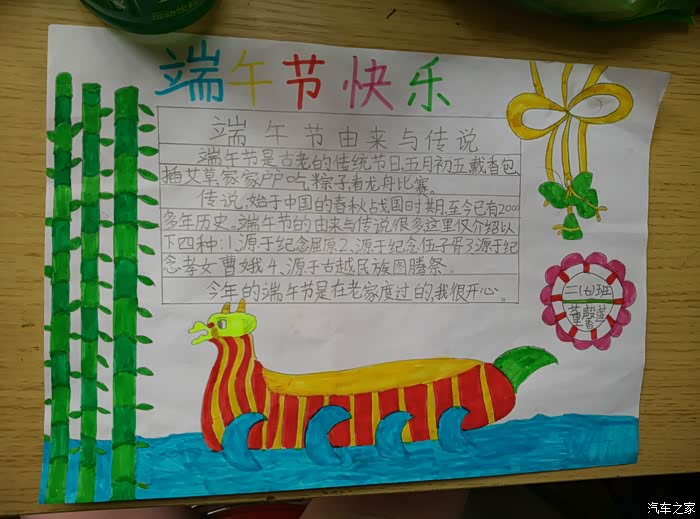 端午节快乐
端午节由来与传说
端午节是古老的传统节日,五月初五,戴香包,
插艾草,家家户户吃粽子,看龙舟比赛。
传说,始于中国的春秋战国时期,至今已有2000
多年历史。端午节的由来与传说很多这里仅介绍以
下四种:1、源于纪念屈原2、源于纪念伍子胥3源于纪
念孝女曹娥4、源于古越民族图腾祭。
今年的端午节是在老家度过的,我很开心。
二(七)班
董馨莲
汽车之家